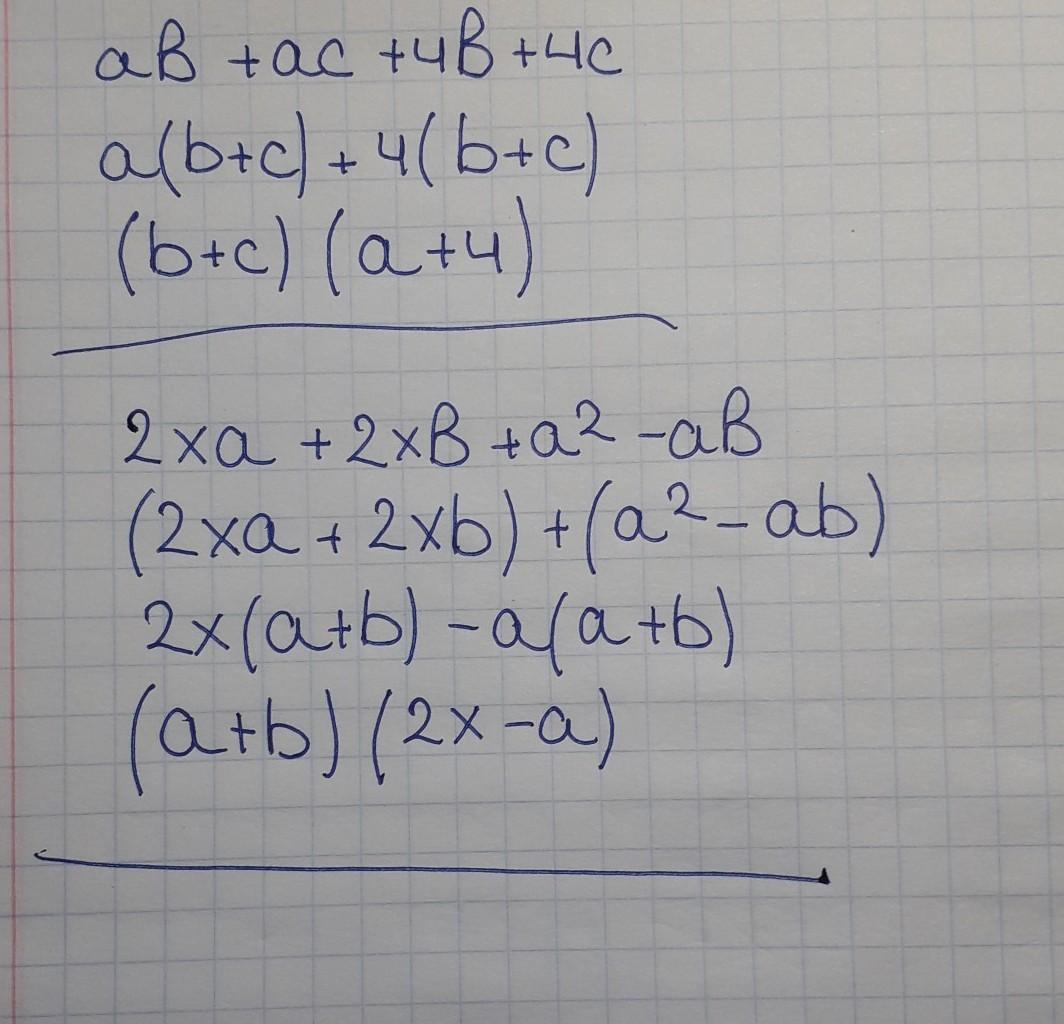 aB + ac + 4B + 4c
a(b+c) + 4(b+c)
(b+c) (a+4)
2xa + 2xB + a² - aB
(2xa + 2xb) + (a² - ab)
2x(a+b) - a(a+b)
(a+b) (2x - a)